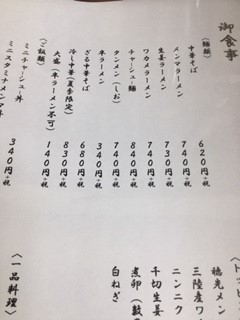 御食事
〈麺類〉
中華そば 620円+税
メンマラーメン 740円+税
生姜ラーメン 730円+税
ワカメラーメン 740円+税
チャーシュー麺 840円+税
タンメン(しお) 740円+税
半ラーメン 340円+税
ざる中華そば 680円+税
冷し中華(夏季限定) 830円+税
大盛(半ラーメン不可) 140円+税
〈ご飯類〉
ミニチャーシュー丼 340円+税
ミニスタミナメンマ丼
穂先メン
三陸産ワ
ニンニク
千切生姜
煮卵
白ねぎ
〈一品料理〉